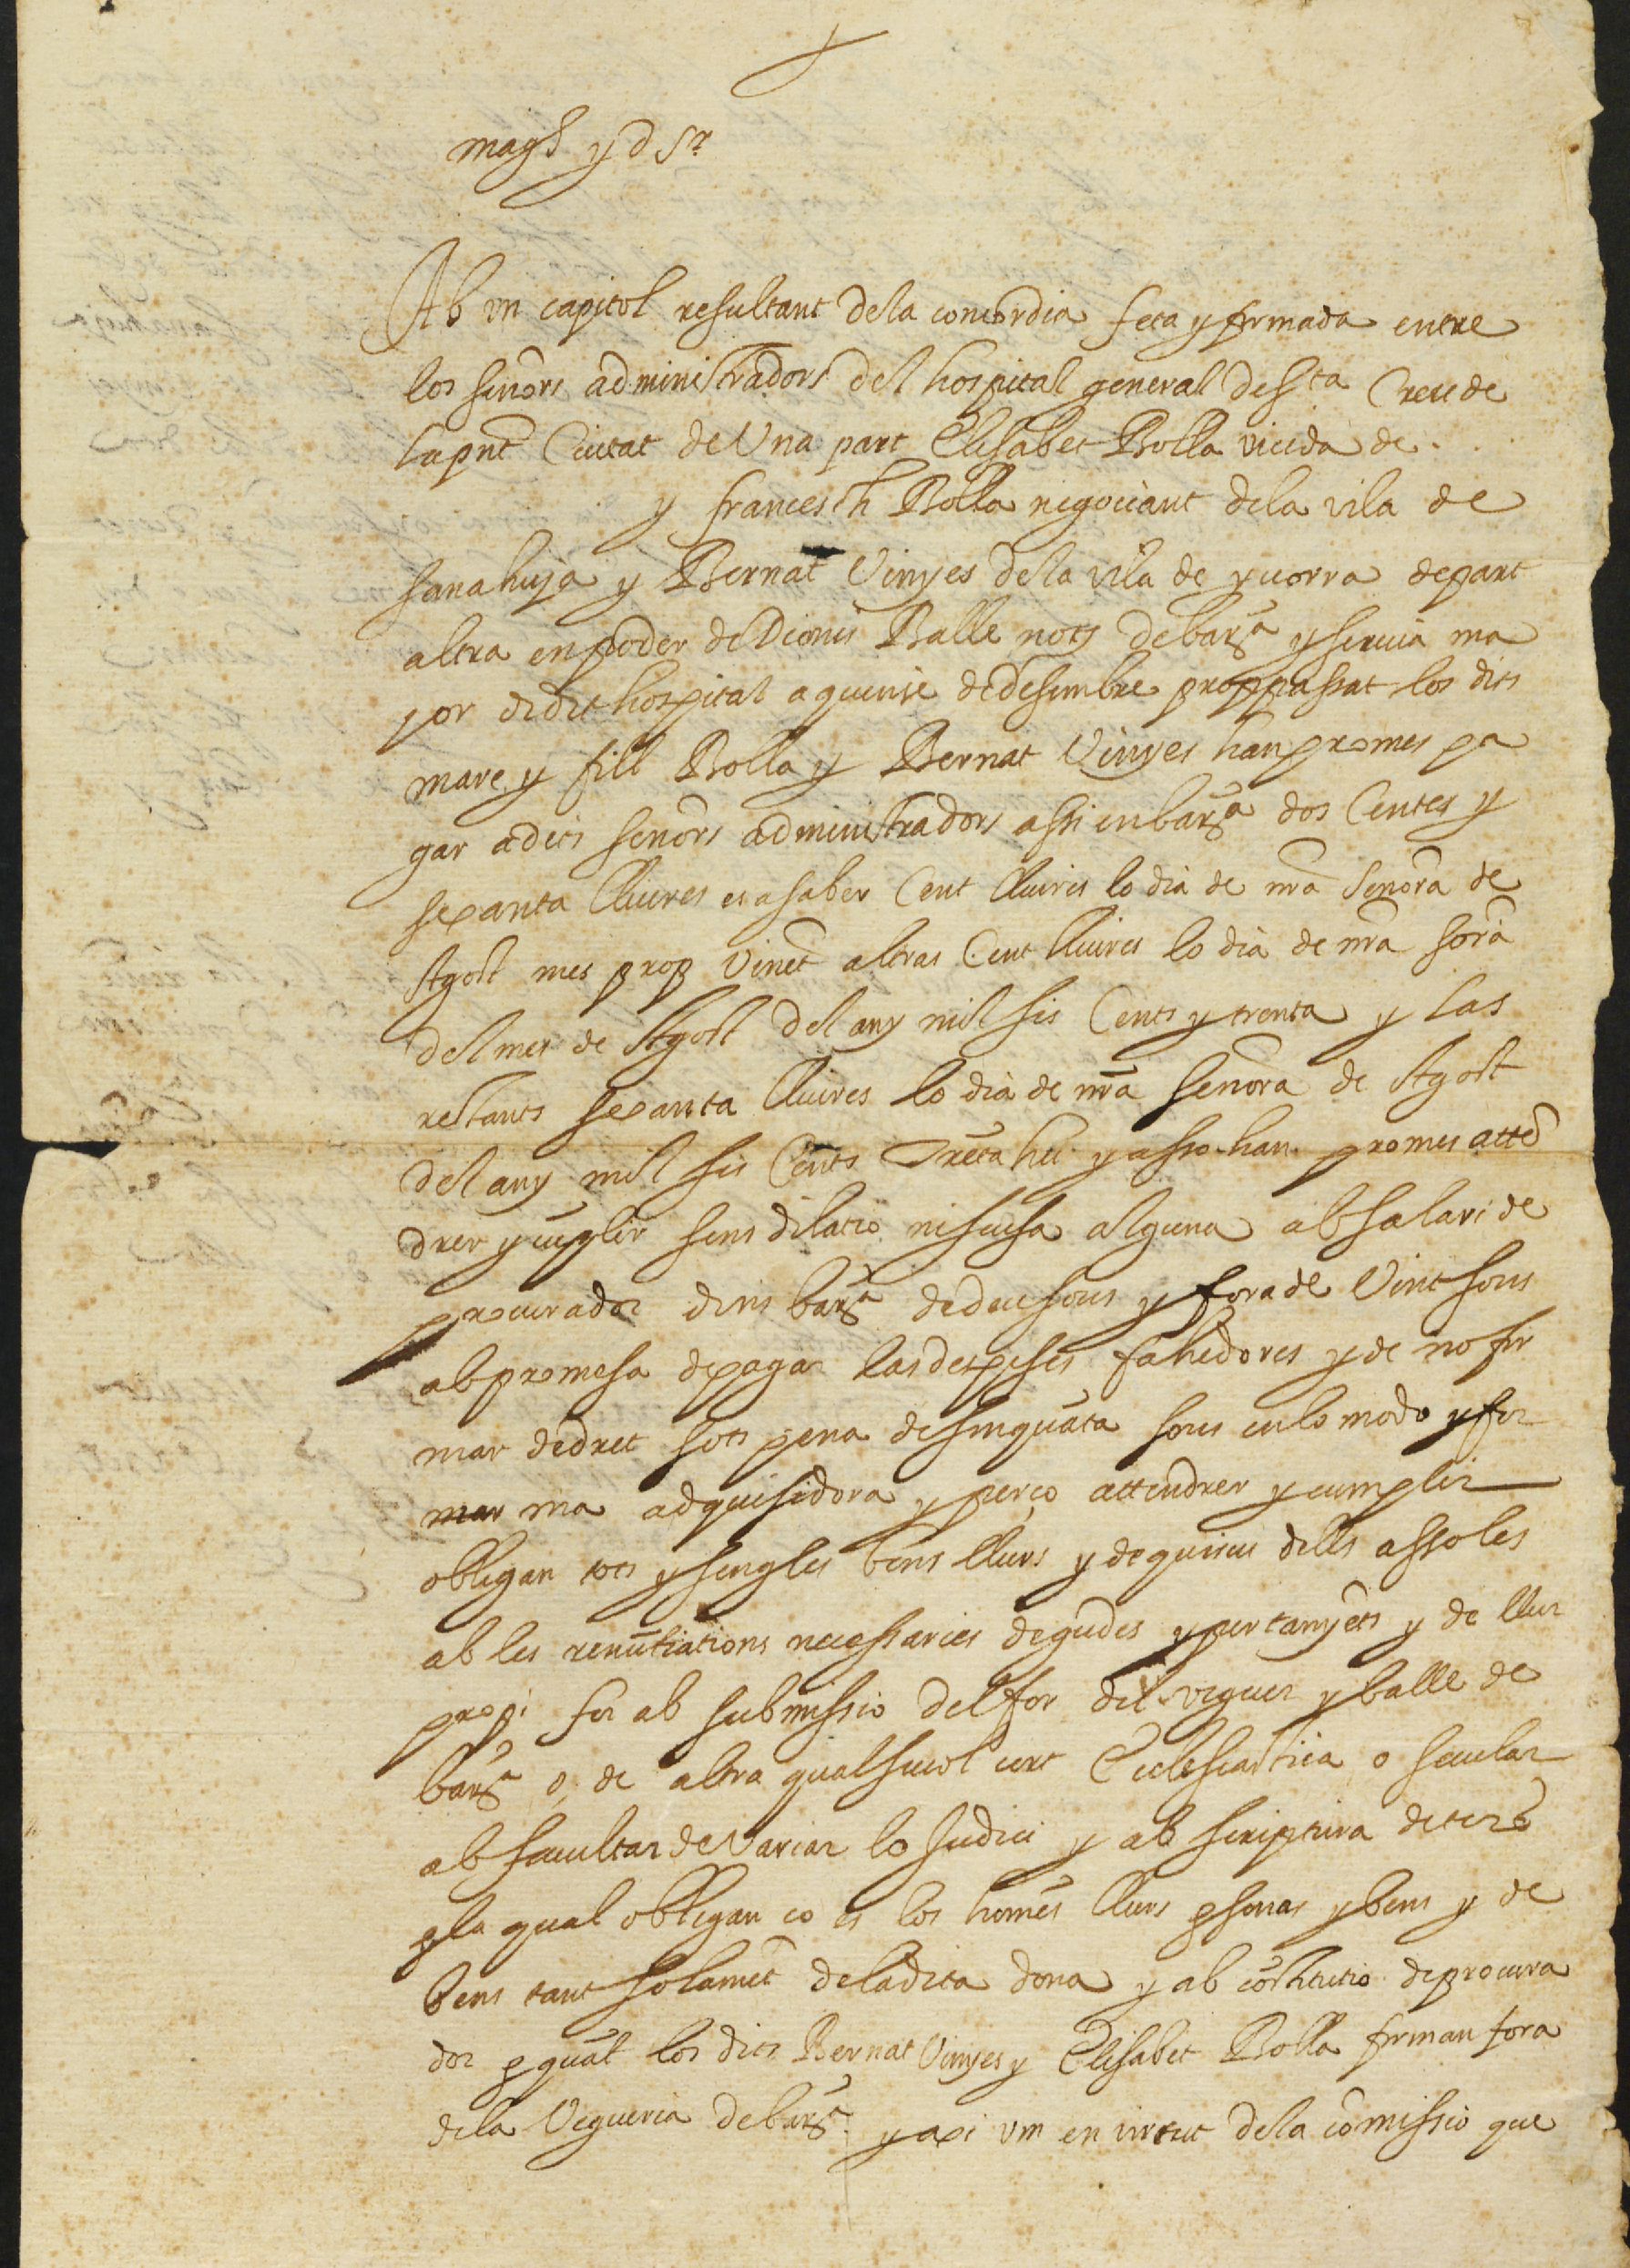 magch y d Sr
Ab vn capitol resultant dela concordia feta y firmada entre
los señors administradors del hospital general de sta Creu de
la pnt Ciutat de Vna part Elisabet Bolla viuda de
y francesch Bolla negociant dela vila de
sanahuja y Bernat Vinyes dela vila de yuorra de part
altra en poder de Dionis Balle nots de barça y scriua ma
jor de dit hospital a quinse de desembre proppassat los dits
mare y fill Bolla y Bernat Vinyes han promes pa
gar a dits señors administradors assi en barça dos Centes y
sexanta lliures es a saber Cent lliures lo dia de nra Señora de
Agost mes prop vinēt altras Cent lliures lo dia de nra sora
del mes de Agost del any mil sis Cents y trenta y las
restants sexanta lliures lo dia de nra señora de Agost
del any mil sis Cents trēta hu y asso han promes attē
drer y cūplir sens dilatio ni scusa alguna ab salari de
procurador dins barça de deu sous y fora de Vint sous
ab promesa de pagar las despeses fahedores y de no fir
mar de dret sots pena de sinquāta sous en lo modo y for
ma adquisidora y perço attendrer y cumplir
obligan tots y sengles bens llurs y de quiscu dells assoles
ab les renūtiations necessaries degudes y pertanyēts y de llur
propi for ab submissio del for del veguer y balle de
barça o de altra qualseuol cort Ecclesiastica o secular
ab facultat de variar lo Judici y ab scriptura de terç
p la qual obligan ço es los homēs llurs psonas y bens y de
bens tant solamēt dela dita dona y ab cōstitutio de procura
dor p quāt los dits Bernat Vinyes y Elisabet Bolla firman fora
dela Vegueria de barça y axi vm en virtut dela cōmissio que